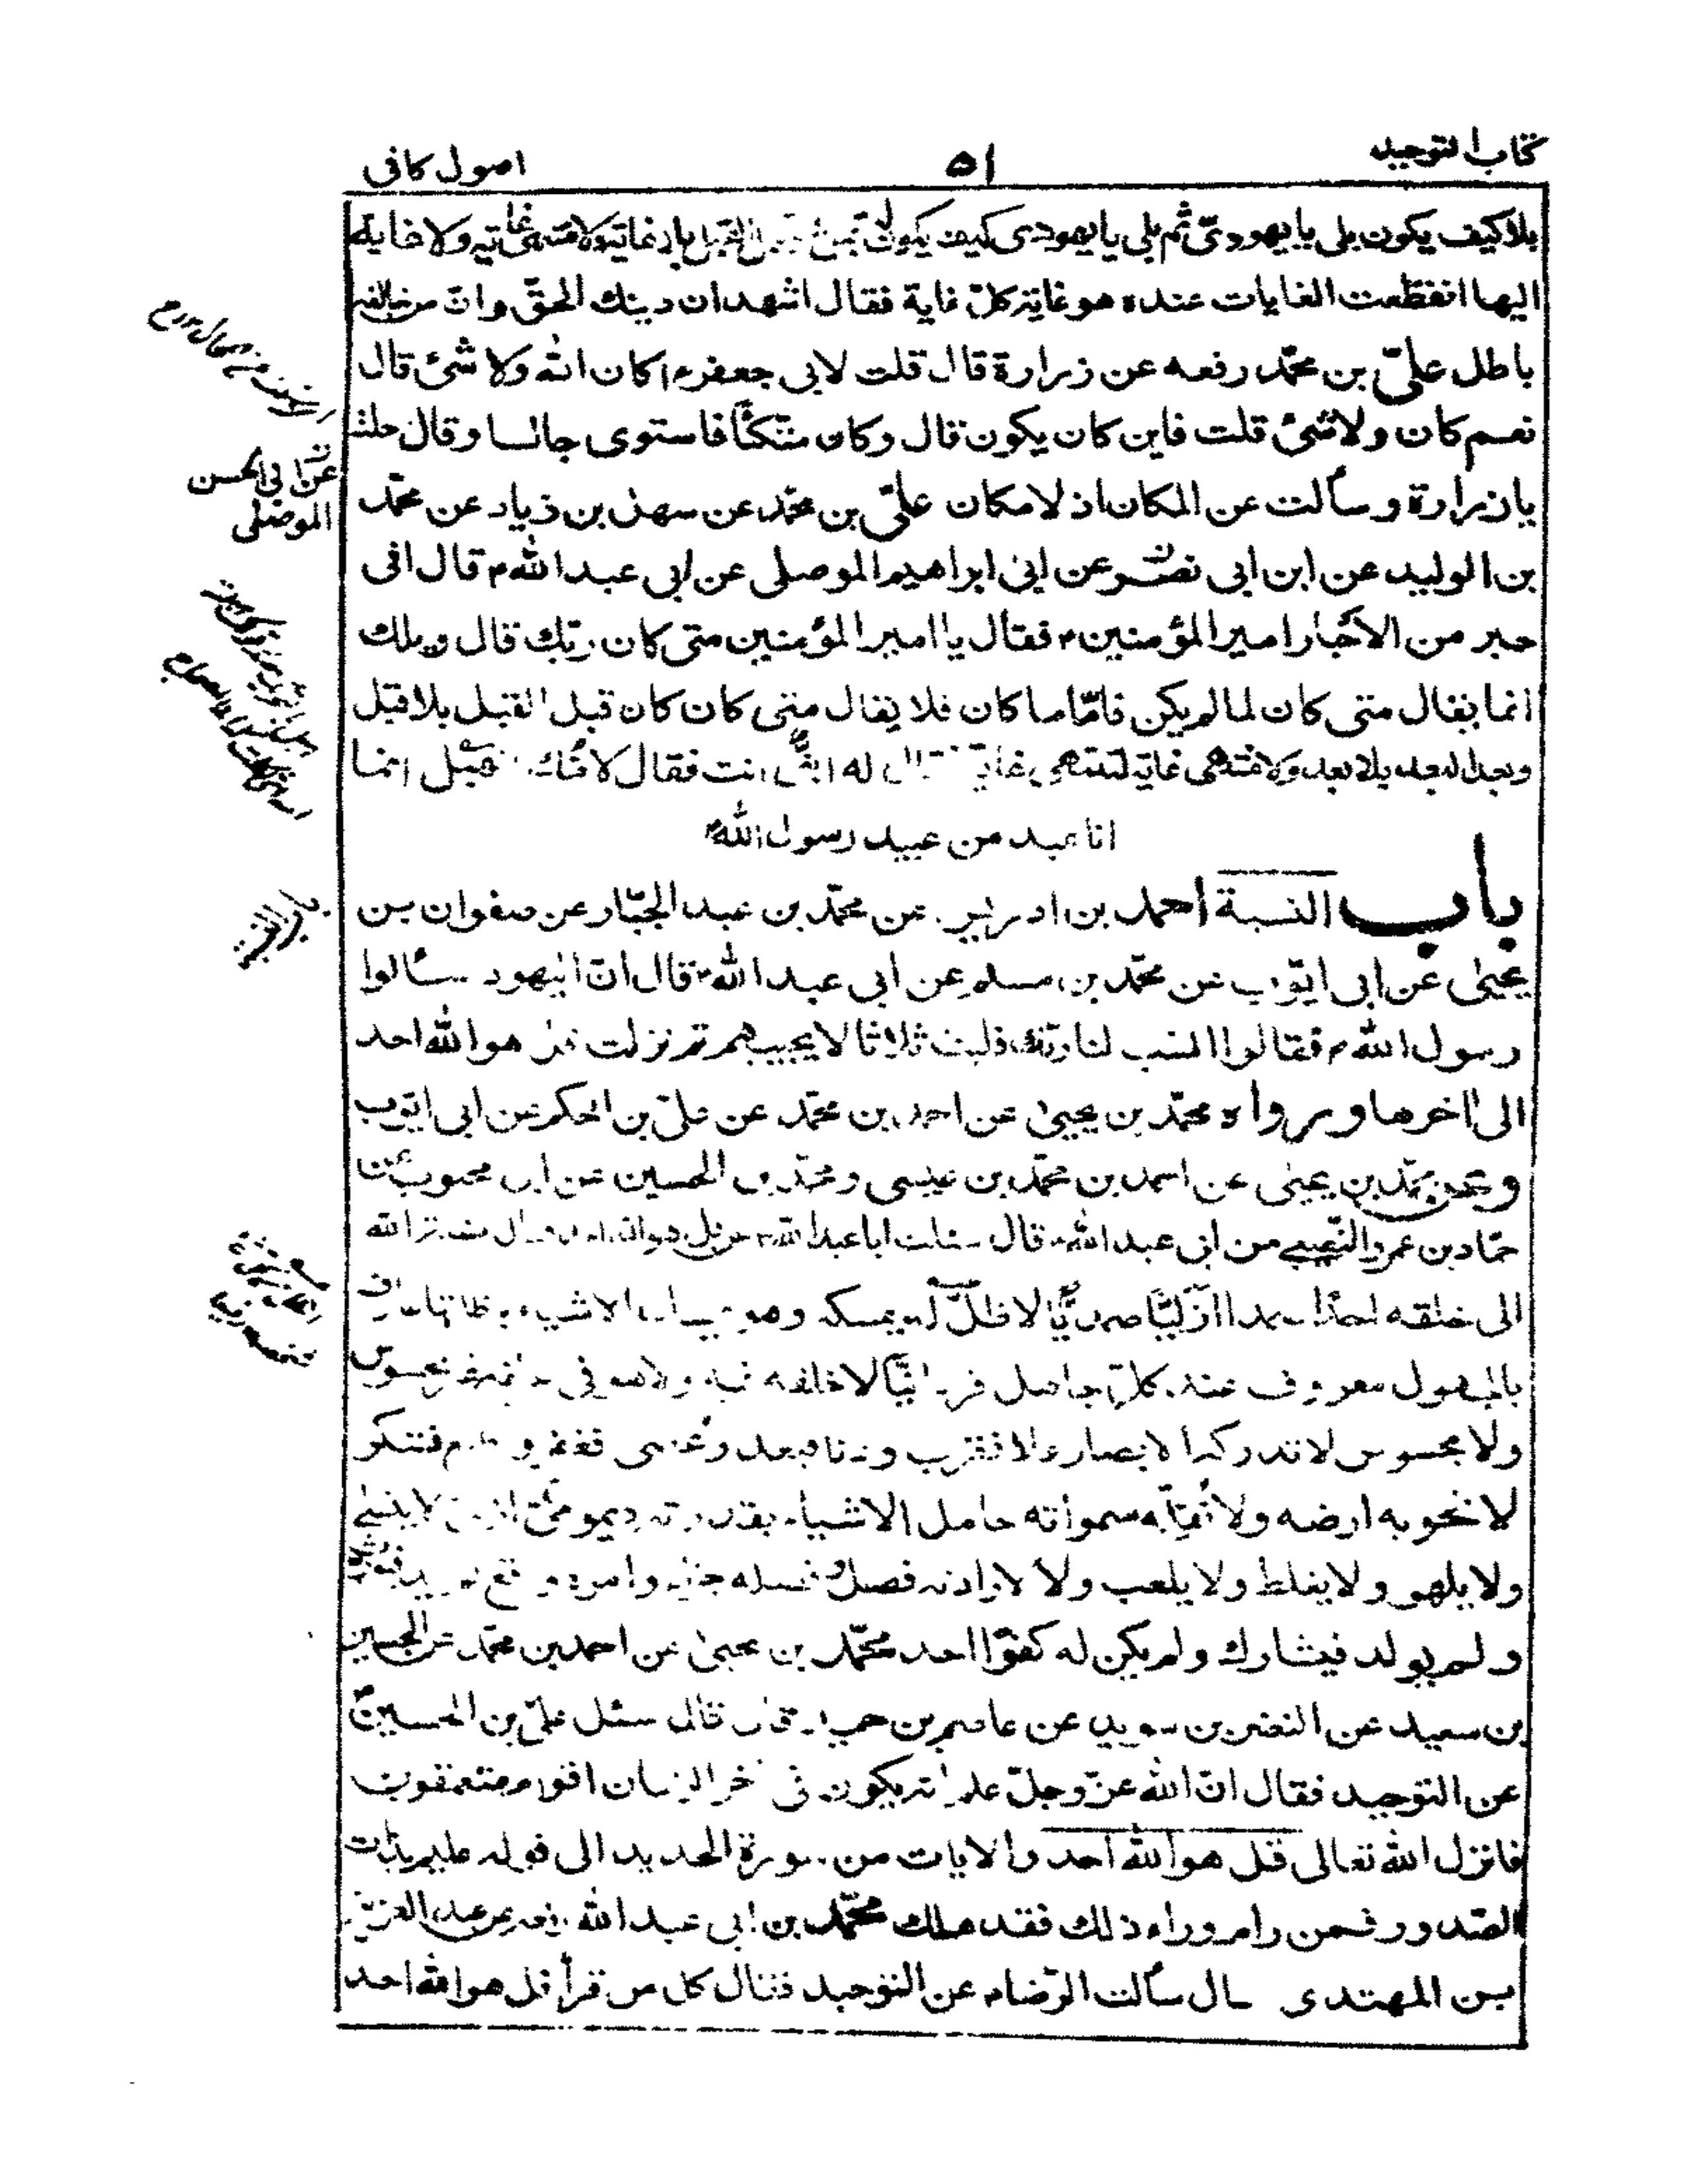 كتاب التوحيد
٥١
اصول كافى
بلا كيف يكون بلى يا يهودىّ ثم بلى يا يهودى كيف يكون له قبل بلا غاية ولا منتهى غاية ولا غاية
اليها انقطعت الغايات عنده هو غاية كلّ غاية فقال اشهد ان دينك الحقّ وانّ من خالفه
باطل علىّ بن محمّد رفعه عن زرارة قال قلت لابى جعفر ع اكان الله ولا شئ قال
نعم كان ولا شئ قلت فاين كان يكون قال وكان متّكئًا فاستوى جالسا وقال حلت
يا زرارة وسألت عن المكان اذ لا مكان علىّ بن محمّد عن سهل بن زياد عن محمّد
بن الوليد عن ابن ابى نصر عن ابى ابراهيم الموصلى عن ابى عبد الله ع قال اتى
حبر من الاحبار امير المؤمنين ع فقال يا امير المؤمنين متى كان ربّك قال ويلك
انما يقال متى كان لما لم يكن فامّا ما كان فلا يقال متى كان كان قبل القبل بلا قبل
وبعد البعد بلا بعد ولا منتهى غاية لتنتهى غايته له انبىّ انت فقال لامّك الهبل انما
انا عبد من عبيد رسول الله ص
باب النسبة احمد بن ادريس عن محمّد بن عبد الجبّار عن صفوان بن
يحيى عن ابى ايّوب عن محمّد بن مسلم عن ابى عبد الله ع قال انّ اليهود سألوا
رسول الله ص فقالوا انسب لنا ربّك فلبث ثلاثا لا يجيبهم ثم نزلت قل هو الله احد
الى اخرها ورواه محمّد بن يحيى عن احمد بن محمّد عن علىّ بن الحكم عن ابى ايّوب
وعن محمّد بن يحيى عن احمد بن محمّد بن عيسى ومحمّد بن الحسين عن ابن محبوب عن
حمّاد بن عمرو النّصيبى عن ابى عبد الله ع قال سئلت ابا عبد الله ع عن قل هو الله احد فقال نسبة الله
الى خلقه احدًا صمدا ازليًّا صمديًّا لا ظلّ له يمسكه وهو يمسك الاشياء باظلتها عارف
بالمجهول معروف عند كلّ جاهل فردانيًّا لا خلقه فيه ولا هو فى خلقه غير محسوس
ولا محسوس لا تدركه الابصار علا فقرب ودنا فبعد وعُصى فغفر و فشكر
لا تحويه ارضه ولا تُقلّه سمواته حامل الاشياء بقدرته ديمومىّ ازلىّ لا ينسى
ولا يلهو ولا يغلط ولا يلعب ولا لارادته فصل وفصله جزاء وامره واقع لم يلد فيورث
ولم يولد فيشارك ولم يكن له كفوًا احد محمّد بن يحيى عن احمد بن محمّد عن الحسين
بن سعيد عن النضر بن سويد عن عاصم بن حميد قال قال سئل علىّ بن الحسين ع
عن التوحيد فقال انّ الله عزّ وجلّ علم انه يكون فى اخر الزمان اقوام متعمّقون
فانزل الله تعالى قل هو الله احد والايات من سورة الحديد الى قوله عليم بذات
الصّدور فمن رام وراء ذلك فقد هلك محمّد بن ابى عبد الله رفعه عن عبد العزيز
بن المهتدى قال سألت الرّضا ع عن التوحيد فقال كل من قرأ قل هو الله احد
عن ابى الحسن
الموصلى